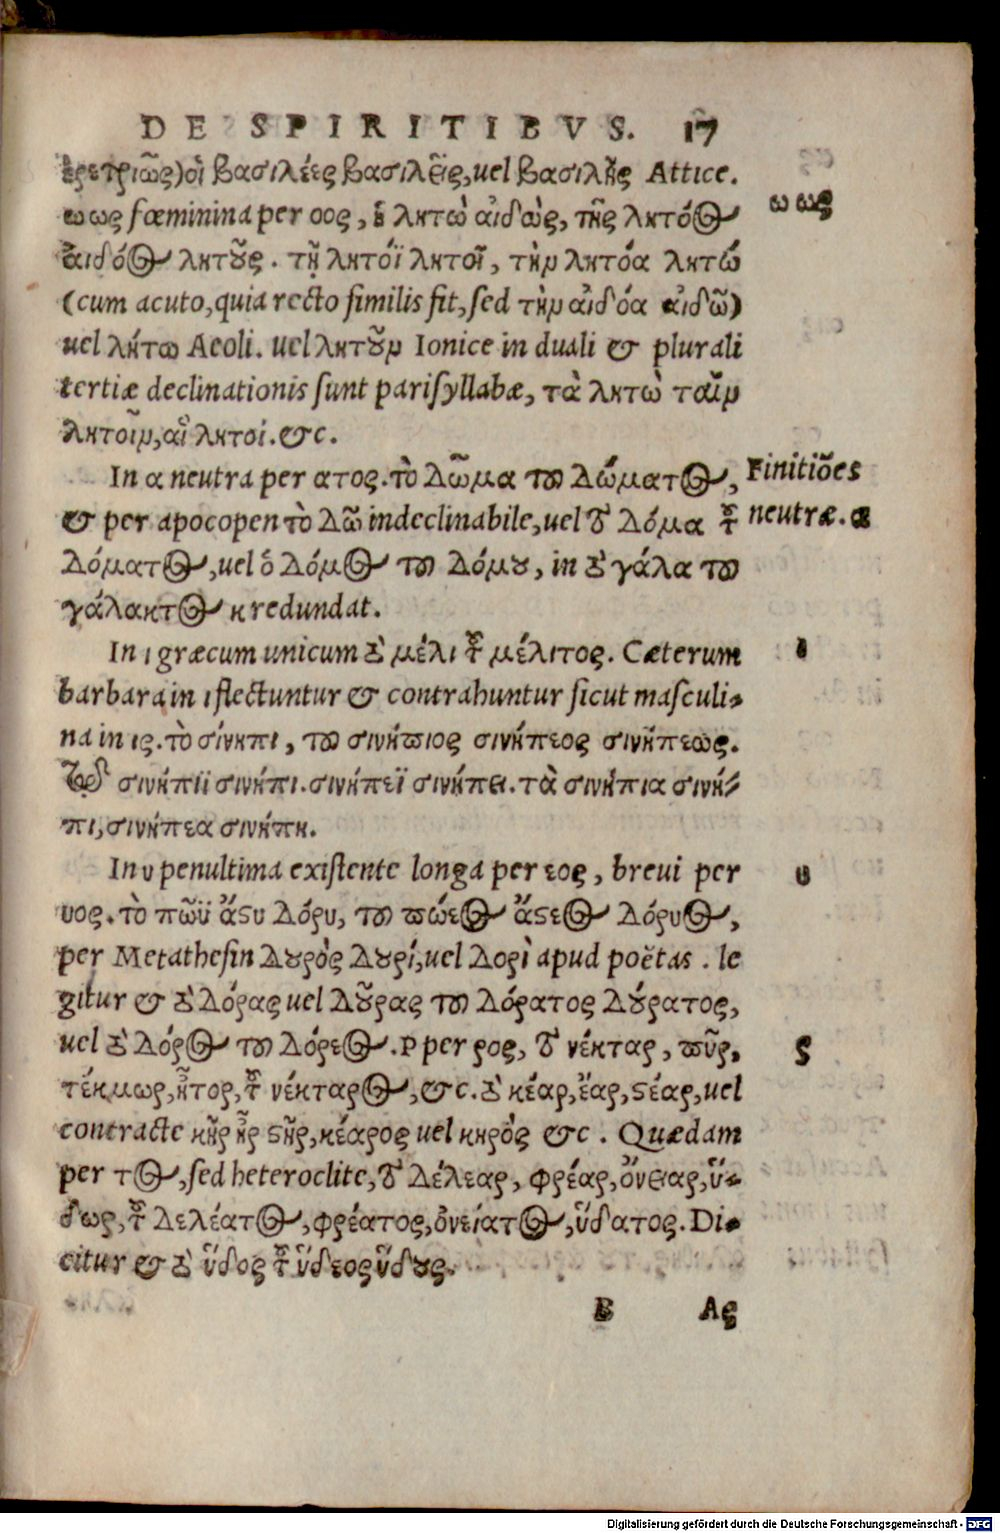 DE SPIRITIBVS. 17
ἐρετριῶς) οἱ βασιλέες βασιλεῖς, uel βασιλῆς Attice.
ωως fœminina per οος, ἡ λητὼ αἰδὼς, τῆς λητόος ωως
αἰδόος λητοῦς. τῇ λητόϊ λητοῖ, τὴν λητόα λητώ
(cum acuto, quia recto similis fit, sed τὴν αἰδόα αἰδῶ)
uel λήτω Aeoli. uel λητοῦν Ionice in duali & plurali
tertiæ declinationis sunt parisyllabæ, τὰ λητὼ ταῖν
λητοῖν, αἱ λητοί. &c.
In α neutra per ατος. τὸ δῶμα τοῦ δώματος, Finitiões
& per apocopen τὸ δῶ indeclinabile, uel τὸ δόμα τοῦ neutræ. α
δόματος, uel ὁ δόμος τοῦ δόμου, in τὸ γάλα τοῦ
γάλακτος κ redundat.
In ι græcum unicum τὸ μέλι τοῦ μέλιτος. Cæterum ι
barbara in ι flectuntur & contrahuntur sicut masculi-
na in ις. τὸ σίνηπι, τοῦ σινήπιος σινήπεος σινήπεως.
τῷ σινήπιϊ σινήπι. σινήπεϊ σινήπει. τὰ σινήπια σινή-
πι, σινήπεα σινήπη.
In υ penultima existente longa per εος, breui per υ
υος. τὸ πῶϋ ἄστυ δόρυ, τοῦ πώεος ἄστεος δόρυος,
per Metathesin δουρὸς δουρί, uel δορὶ apud poëtas. le
gitur & τὸ δόρας uel δοῦρας τοῦ δόρατος δούρατος,
uel τὸ δόρος τοῦ δόρεος. Ρ per ρος, τὸ νέκταρ, πῦρ, ρ
τέκμωρ, ἦτορ, τοῦ νέκταρος, &c. τὸ κέαρ, ἔαρ, στέαρ, uel
contracte κῆρ ἦρ στῆρ, κέαρος uel κηρὸς &c. Quædam
per τος, sed heteroclite, τὸ δέλεαρ, φρέαρ, ὄνειαρ, ὕ-
δωρ, τοῦ δελέατος, φρέατος, ὀνείατος, ὕδατος. Di-
citur & τὸ ὕδος τοῦ ὕδεος ὕδους.
B Aς
Digitalisierung gefördert durch die Deutsche Forschungsgemeinschaft - DFG